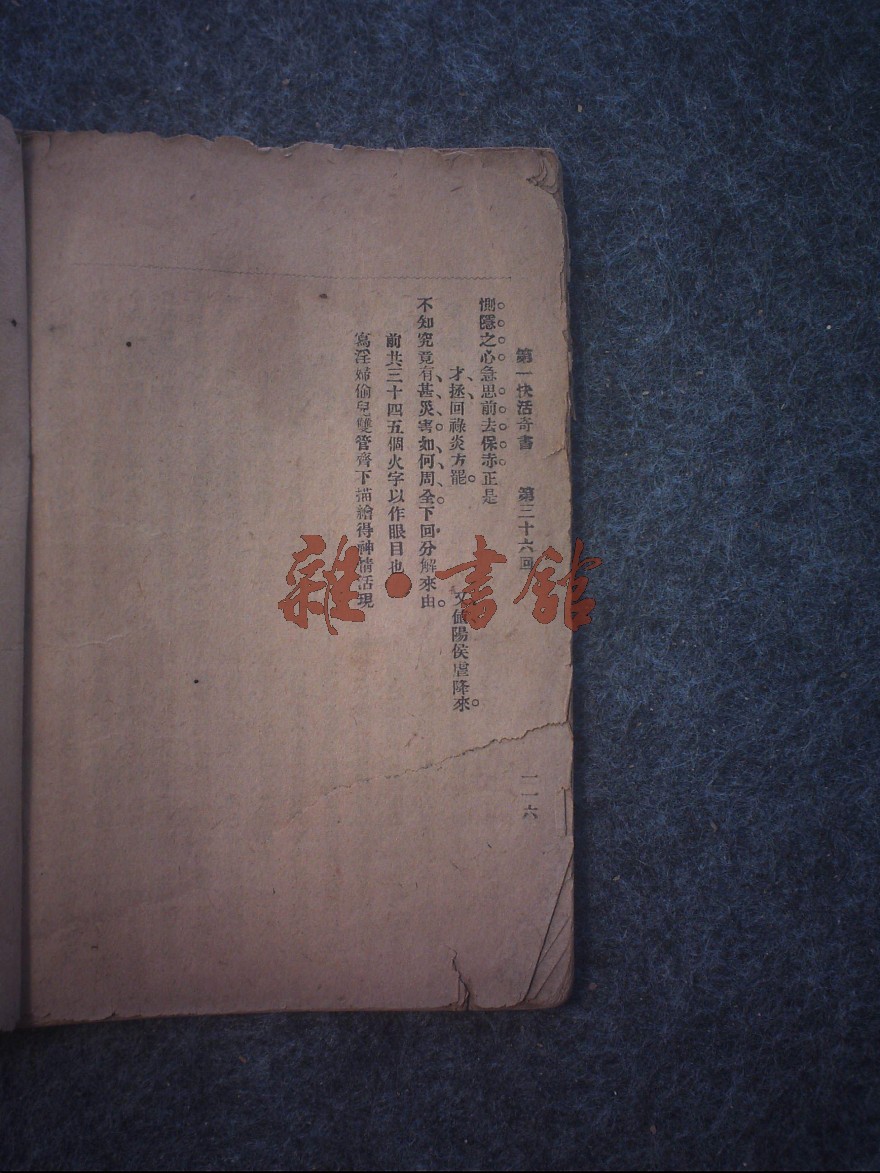 第一快活奇書 第三十六回 一一六
惻隱之心急思前去保赤正是
才拯回祿炎方罷。 又值陽侯虐降來。
不知究竟有甚災害。如何周全。下回分解來由。
前共三十四五個火字以作眼目也
寫淫婦偷兒雙管齊下描繪得神情活現
雜·書館